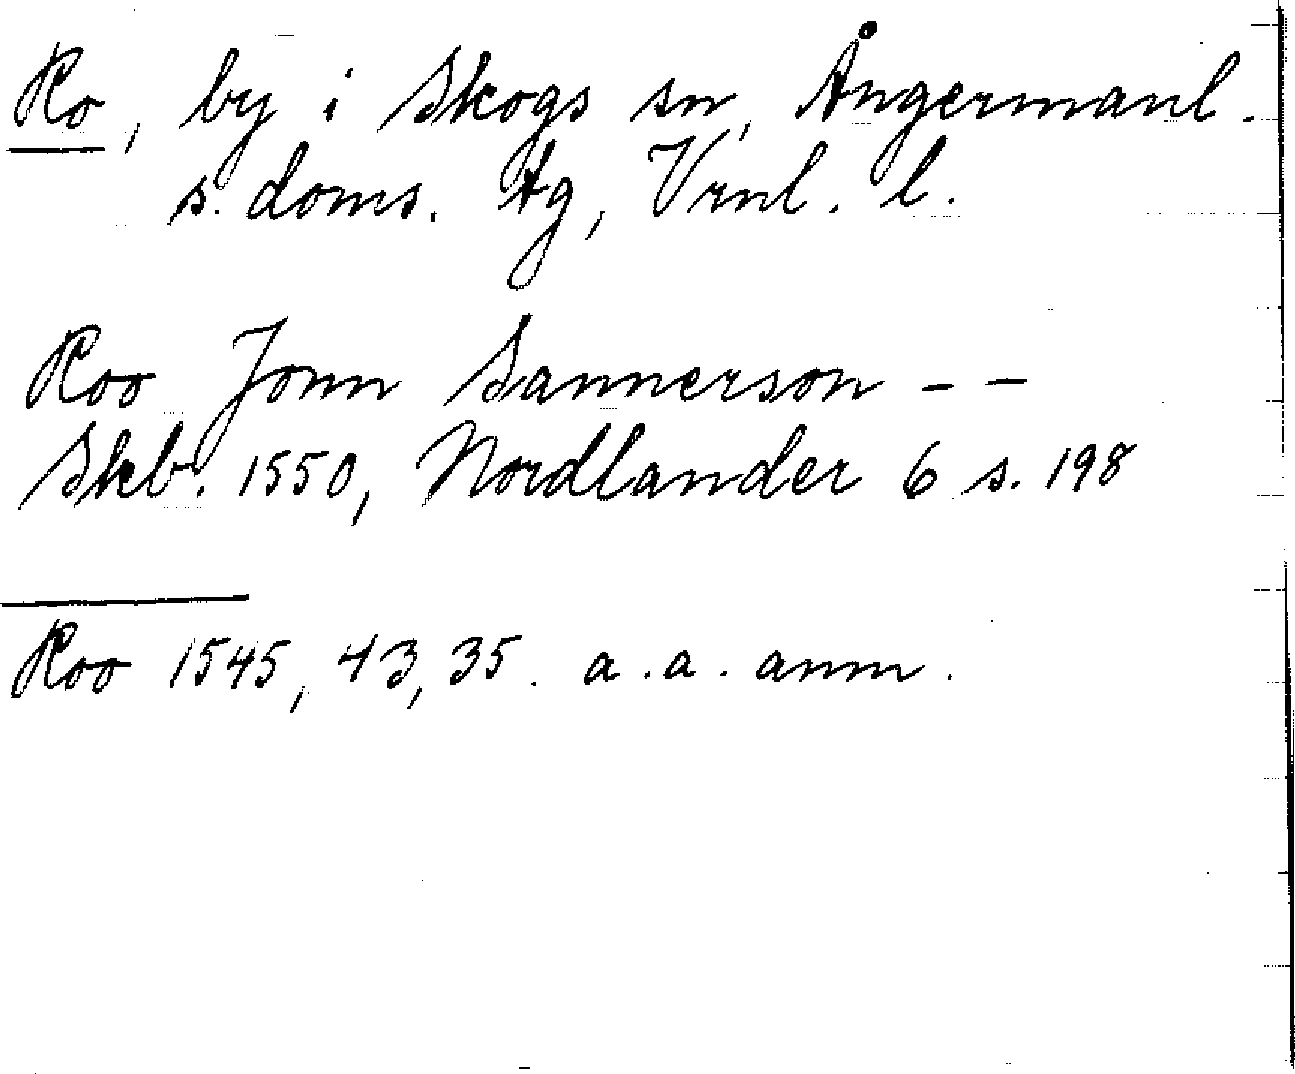 Ro, by i Skogs sn, Ångermanl.
s. doms. tg, Vrnl. l.
Roo Jonn Sannerson - -
Skb. 1550, Nordlander 6 s. 198
Roo 1545, 43, 35. a. a. anm.